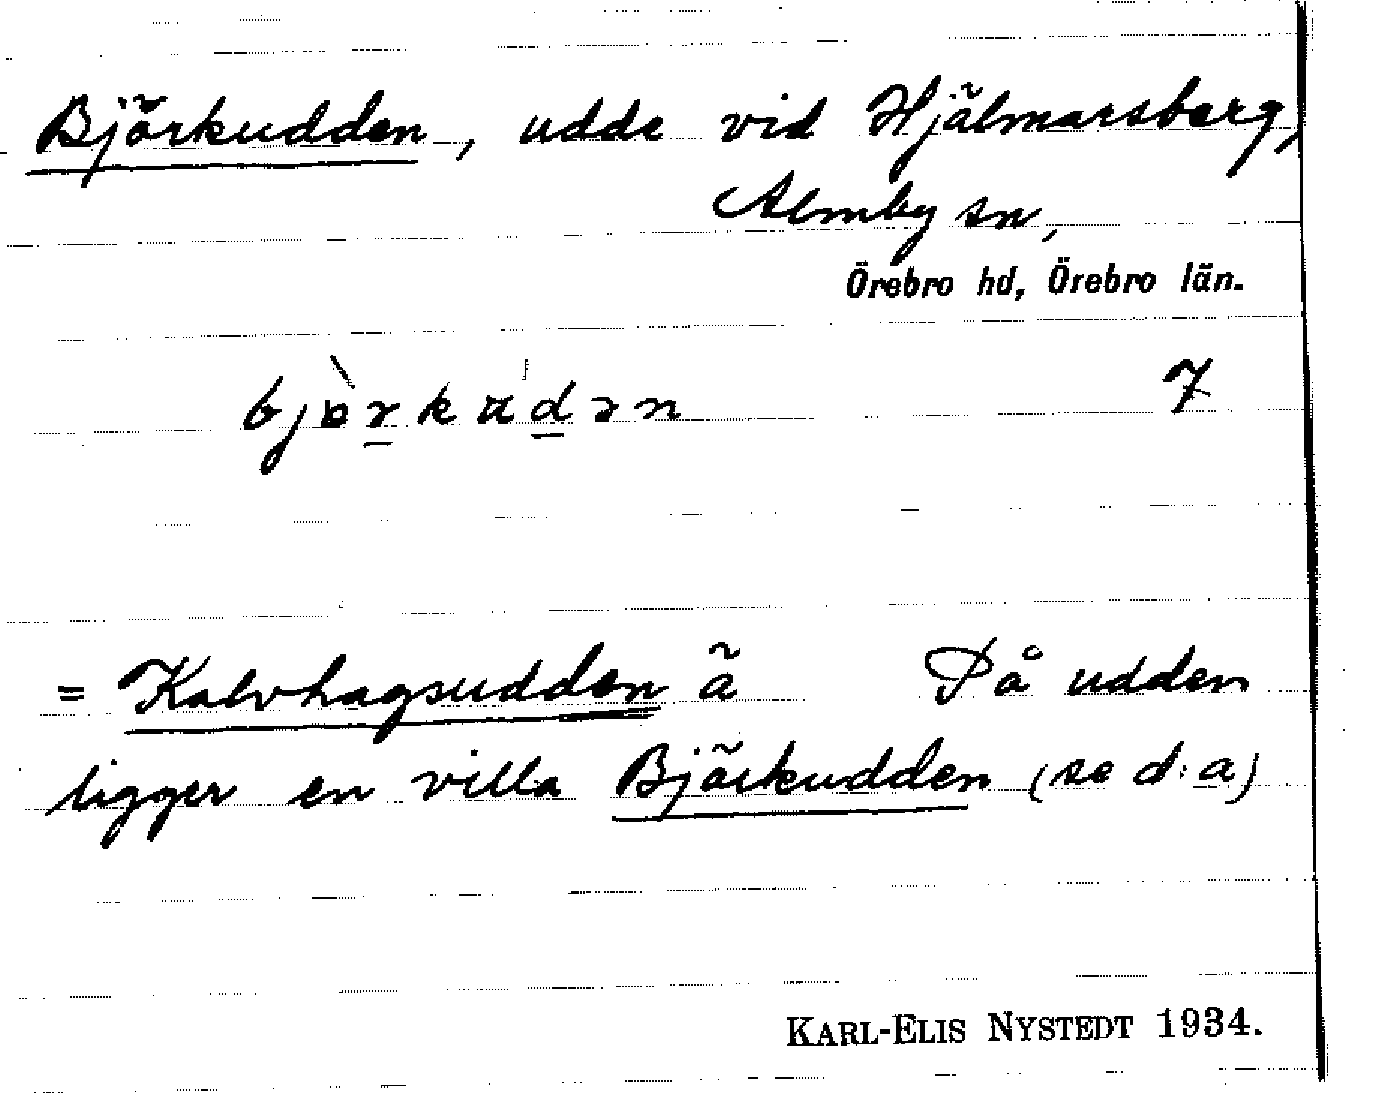 Björkudden, udde vid Hjälmarsberg,
Almby sn,
Örebro hd, Örebro län.
bjö̀rkud́ən 7
= Kalvhagsudden ä På udden
ligger en villa Björkudden (se d:a)
KARL-ELIS NYSTEDT 1934.